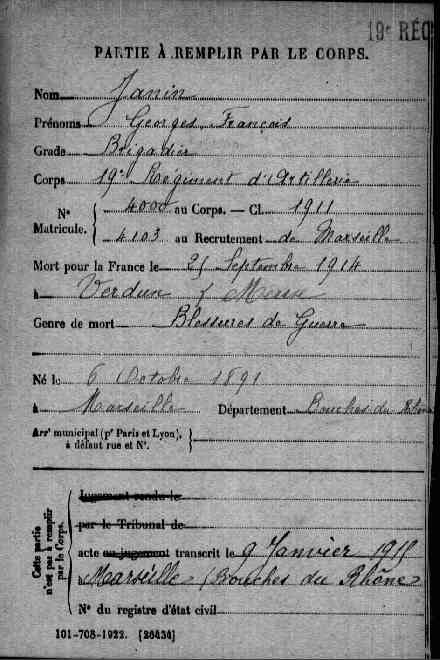 19e RÉG
PARTIE À REMPLIR PAR LE CORPS.
Nom Janin
Prénoms Georges, François
Grade Brigadier
Corps 19e Régiment d'Artillerie
N° Matricule. { 4000 au Corps. — Cl. 1911
4103 au Recrutement de Marseille
Mort pour la France le 25 Septembre 1914
à Verdun Meuse
Genre de mort Blessures de Guerre
Né le 6 Octobre 1891
à Marseille Département Bouches du Rhône
Arrt municipal (pr Paris et Lyon), à défaut rue et N°.
Cette partie n'est pas à remplir par le Corps.
Jugement rendu le
par le Tribunal de
acte ou jugement transcrit le 9 Janvier 1915
à Marseille (Bouches du Rhône)
N° du registre d'état civil
101-708-1922. [26434]